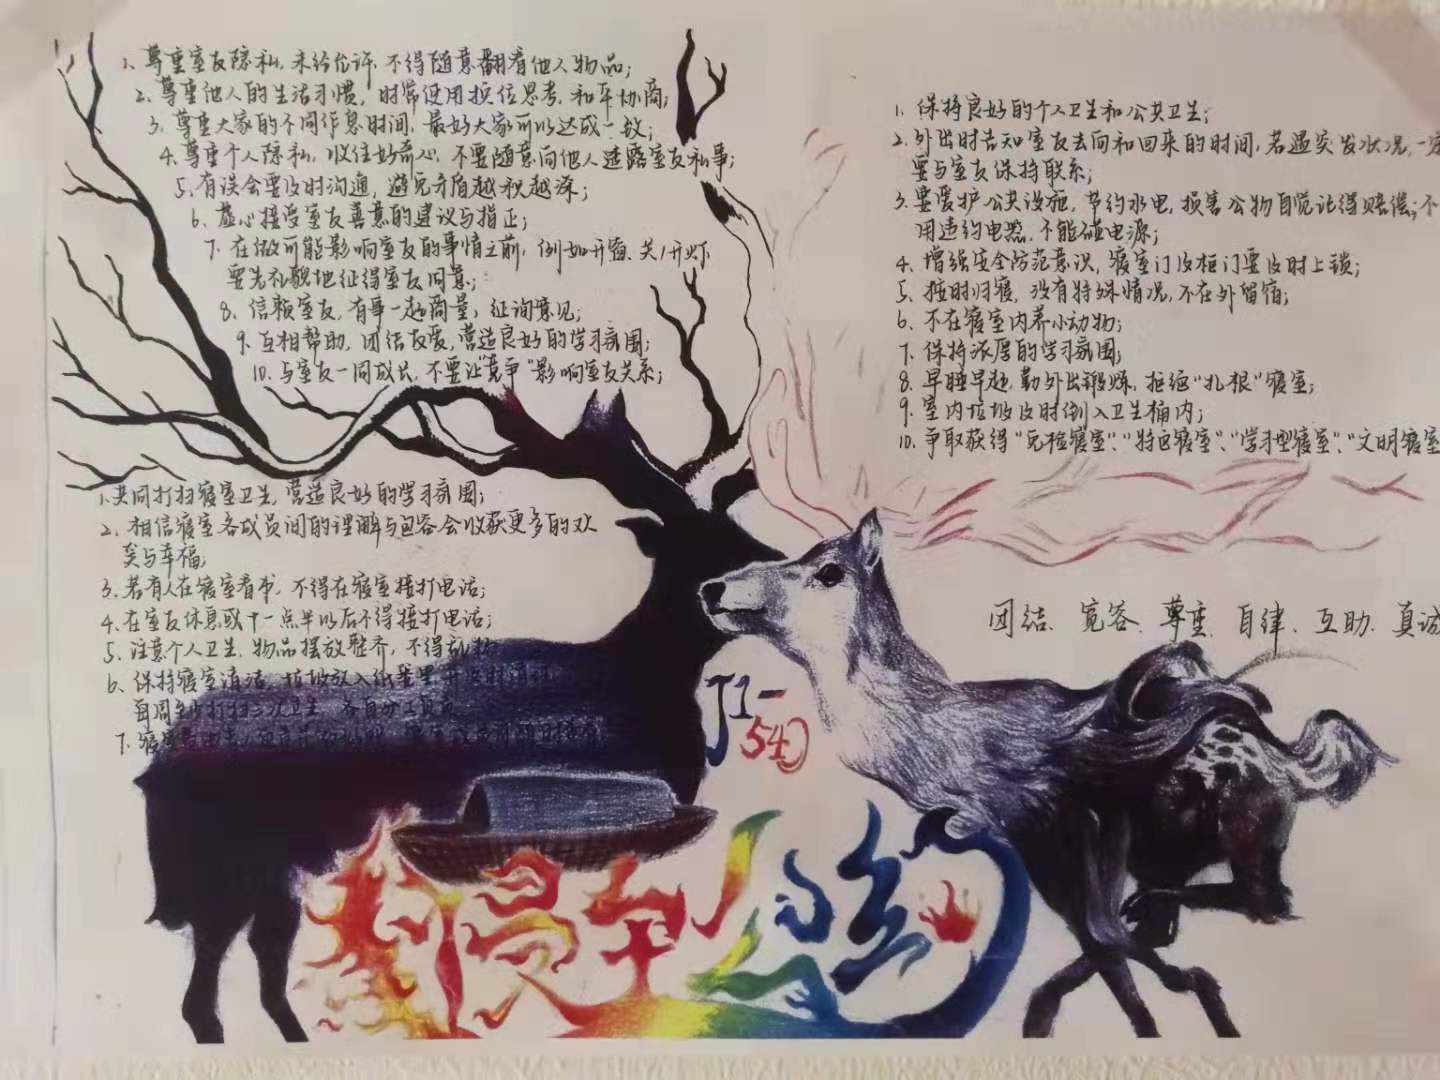 1、尊重室友隐私,未经允许,不得随意翻看他人物品;
2、尊重他人的生活习惯,时常使用换位思考,和平协商;
3、尊重大家的不同作息时间,最好大家可以达成一致;
4、尊重个人隐私,收住好奇心,不要随意向他人透露室友私事;
5、有误会要及时沟通,避免矛盾越积越深;
6、虚心接受室友善意的建议与指正;
7、在做可能影响室友的事情之前,例如开窗、关/开灯
要先礼貌地征得室友同意;
8、信赖室友,有事一起商量,征询意见;
9、互相帮助,团结友爱,营造良好的学习氛围;
10、与室友一同成长,不要让"竞争"影响室友关系;
1、保持良好的个人卫生和公共卫生;
2、外出时告知室友去向和回来的时间,若遇突发状况,一定
要与室友保持联系;
3、要爱护公共设施,节约水电,损害公物自觉记得赔偿;不
用违约电器,不能碰电源;
4、增强安全防范意识,寝室门及柜门要及时上锁;
5、按时归寝,没有特殊情况,不在外留宿;
6、不在寝室内养小动物;
7、保持浓厚的学习氛围;
8、早睡早起,勤外出锻炼,拒绝"扎根"寝室;
9、室内垃圾及时倒入卫生桶内;
10、争取获得"免检寝室"、"特色寝室"、"学习型寝室"、"文明寝室
1、共同打扫寝室卫生,营造良好的学习氛围;
2、相信寝室各成员间的理解与包容会收获更多的欢
笑与幸福;
3、若有人在寝室看书,不得在寝室接打电话;
4、在室友休息或十一点半以后不得接打电话;
5、注意个人卫生,物品摆放整齐,不得乱扔
6、保持寝室清洁,垃圾放入纸篓里并及时清理
每周至少打扫三次卫生
7、寝室
团结、宽容、尊重、自律、互助、真诚
J1-
540
寝室公约